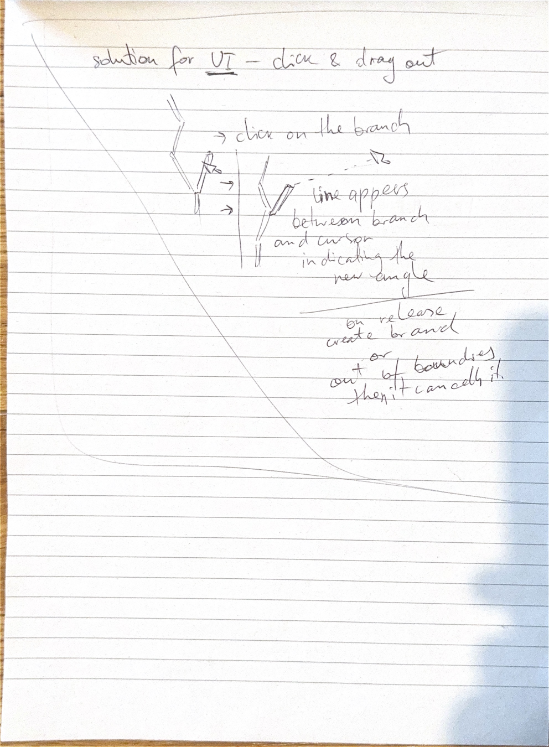 solution for UI - click & drag out
→ click on the branch
line appers
between branch
and cursor
indicating the
new angle
on release
create brand
or
out of boundries
then it cancells it.